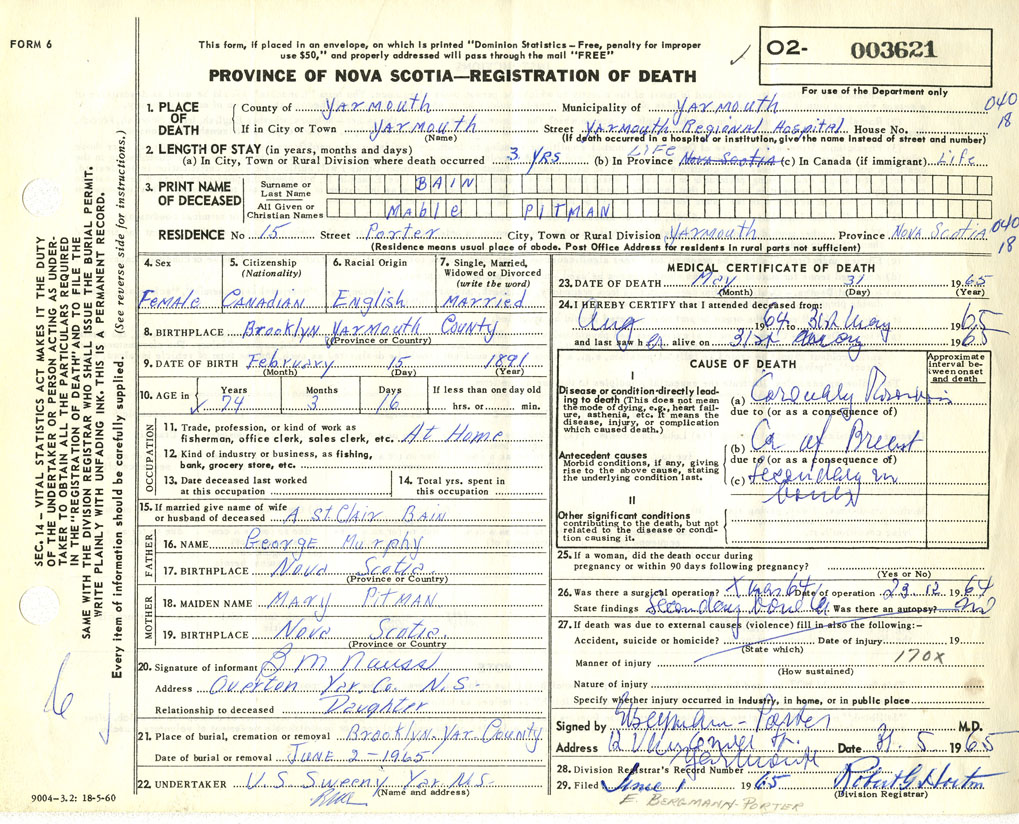 FORM 6
This form, if placed in an envelope, on which is printed "Dominion Statistics – Free, penalty for improper
use $50," and properly addressed will pass through the mail "FREE"
PROVINCE OF NOVA SCOTIA—REGISTRATION OF DEATH
✓ 02- 003621
For use of the Department only
SEC. 14 – VITAL STATISTICS ACT MAKES IT THE DUTY
OF THE UNDERTAKER OR PERSON ACTING AS UNDER-
TAKER TO OBTAIN ALL THE PARTICULARS REQUIRED
IN THE "REGISTRATION OF DEATH" AND TO FILE THE
SAME WITH THE DIVISION REGISTRAR WHO SHALL ISSUE THE BURIAL PERMIT.
WRITE PLAINLY WITH UNFADING INK. THIS IS A PERMANENT RECORD.
Every item of information should be carefully supplied. (See reverse side for instructions.)
1. PLACE OF DEATH
County of Yarmouth Municipality of Yarmouth 040
If in City or Town Yarmouth Street Yarmouth Regional Hospital House No. 18
(Name) (If death occurred in a hospital or institution, give the name instead of street and number)
2. LENGTH OF STAY (in years, months and days)
(a) In City, Town or Rural Division where death occurred 3 YRS (b) In Province LIFE Nova Scotia (c) In Canada (if immigrant) LIFE
3. PRINT NAME OF DECEASED
Surname or Last Name BAIN
All Given or Christian Names Mable PITMAN
RESIDENCE No 15 Street Porter City, Town or Rural Division Yarmouth Province Nova Scotia 040 18
(Residence means usual place of abode. Post Office Address for residents in rural parts not sufficient)
4. Sex Female
5. Citizenship (Nationality) Canadian
6. Racial Origin English
7. Single, Married, Widowed or Divorced (write the word) Married
8. BIRTHPLACE Brooklyn Yarmouth County
(Province or Country)
9. DATE OF BIRTH February 15 1891
(Month) (Day) (Year)
10. AGE in Years Months Days If less than one day old
74 3 16 hrs. or min.
OCCUPATION
11. Trade, profession, or kind of work as
fisherman, office clerk, sales clerk, etc. At Home
12. Kind of industry or business, as fishing,
bank, grocery store, etc.
13. Date deceased last worked
at this occupation
14. Total yrs. spent in
this occupation
15. If married give name of wife
or husband of deceased A St. Clair Bain
FATHER
16. NAME George Murphy
17. BIRTHPLACE Nova Scotia
(Province or Country)
MOTHER
18. MAIDEN NAME Mary Pitman
19. BIRTHPLACE Nova Scotia
(Province or Country)
20. Signature of informant B M Nauss
Address Overton Yar. Co. N.S.
Relationship to deceased Daughter
21. Place of burial, cremation or removal Brooklyn. Yar. County
Date of burial or removal JUNE 2 - 1965
22. UNDERTAKER V.S Sweeny Yar. N.S.
(Name and address)
9004–3.2: 18-5-60
MEDICAL CERTIFICATE OF DEATH
23. DATE OF DEATH May 31 1965
(Month) (Day) (Year)
24. I HEREBY CERTIFY that I attended deceased from:
Aug 1964 to 31st May 1965
and last saw h er alive on 31st 1965
CAUSE OF DEATH
Approximate interval between onset and death
I
Disease or condition directly leading to death (This does not mean the mode of dying, e.g., heart failure, asthenia, etc. It means the disease, injury, or complication which caused death.)
(a)
due to (or as a consequence of)
Antecedent causes
Morbid conditions, if any, giving rise to the above cause, stating the underlying condition last.
(b) Ca of Breast
due to (or as a consequence of)
(c) secondary in
bones
II
Other significant conditions
contributing to the death, but not related to the disease or condition causing it.
25. If a woman, did the death occur during
pregnancy or within 90 days following pregnancy?
(Yes or No)
26. Was there a surgical operation? Date of operation 23 12 1964
State findings Secondary bone Ca Was there an autopsy? no
27. If death was due to external causes (violence) fill in also the following:–
Accident, suicide or homicide? Date of injury 19
(State which)
Manner of injury 170X
(How sustained)
Nature of injury
Specify whether injury occurred in industry, in home, or in public place
Signed by Bergmann-Porter M.D.
Address Yarmouth Date 31. 5 1965
28. Division Registrar's Record Number
29. Filed June 1 1965 Robert G Horton
(Division Registrar)
E. BERGMANN-PORTER